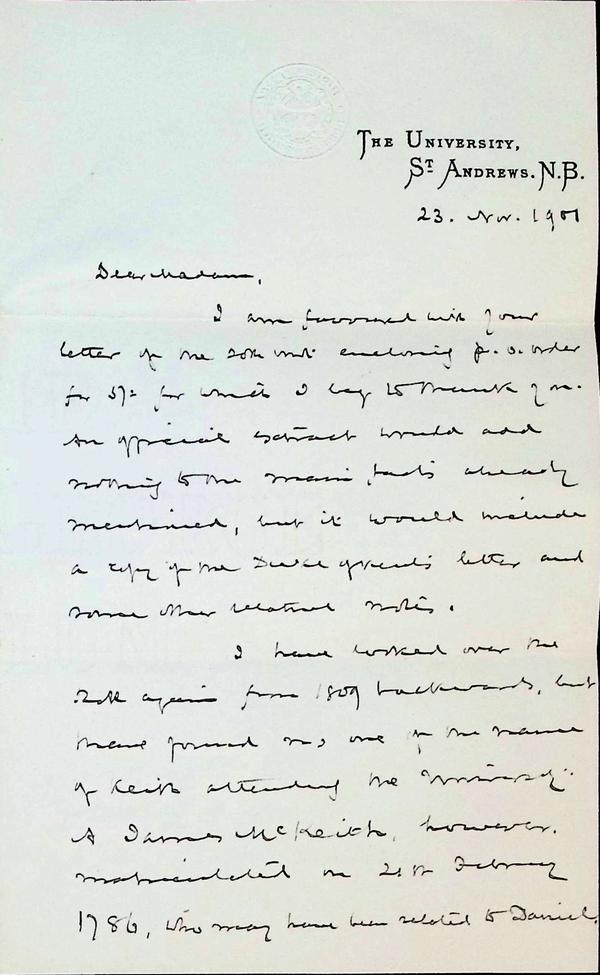 THE UNIVERSITY,
ST. ANDREWS. N.B.
23. Nov. 1901
Dear Madam,
I am favoured with your
letter of the 20th inst enclosing p. o. order
for 5/= for which I beg to thank you.
An official extract would add
nothing to the main facts already
mentioned, but it would include
a copy of the Duke of Kent's letter and
some other relative notes.
I have looked over the
again from 1809 backwards, but
have found no one of the name
of Keith attending the University.
A James McKeith, however,
matriculated on 21st February
1786, who may have been related to Daniel.